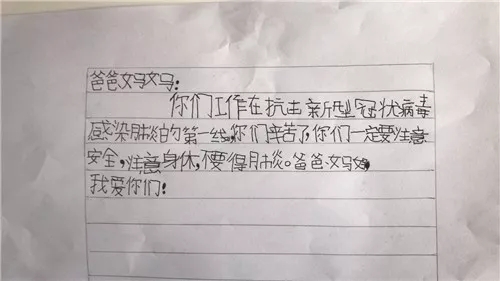 爸爸妈妈：
你们工作在抗击新型冠状病毒
感染肺炎的第一线，你们辛苦了，你们一定要注意
安全，注意身体，不要得肺炎。爸爸妈妈，
我爱你们！